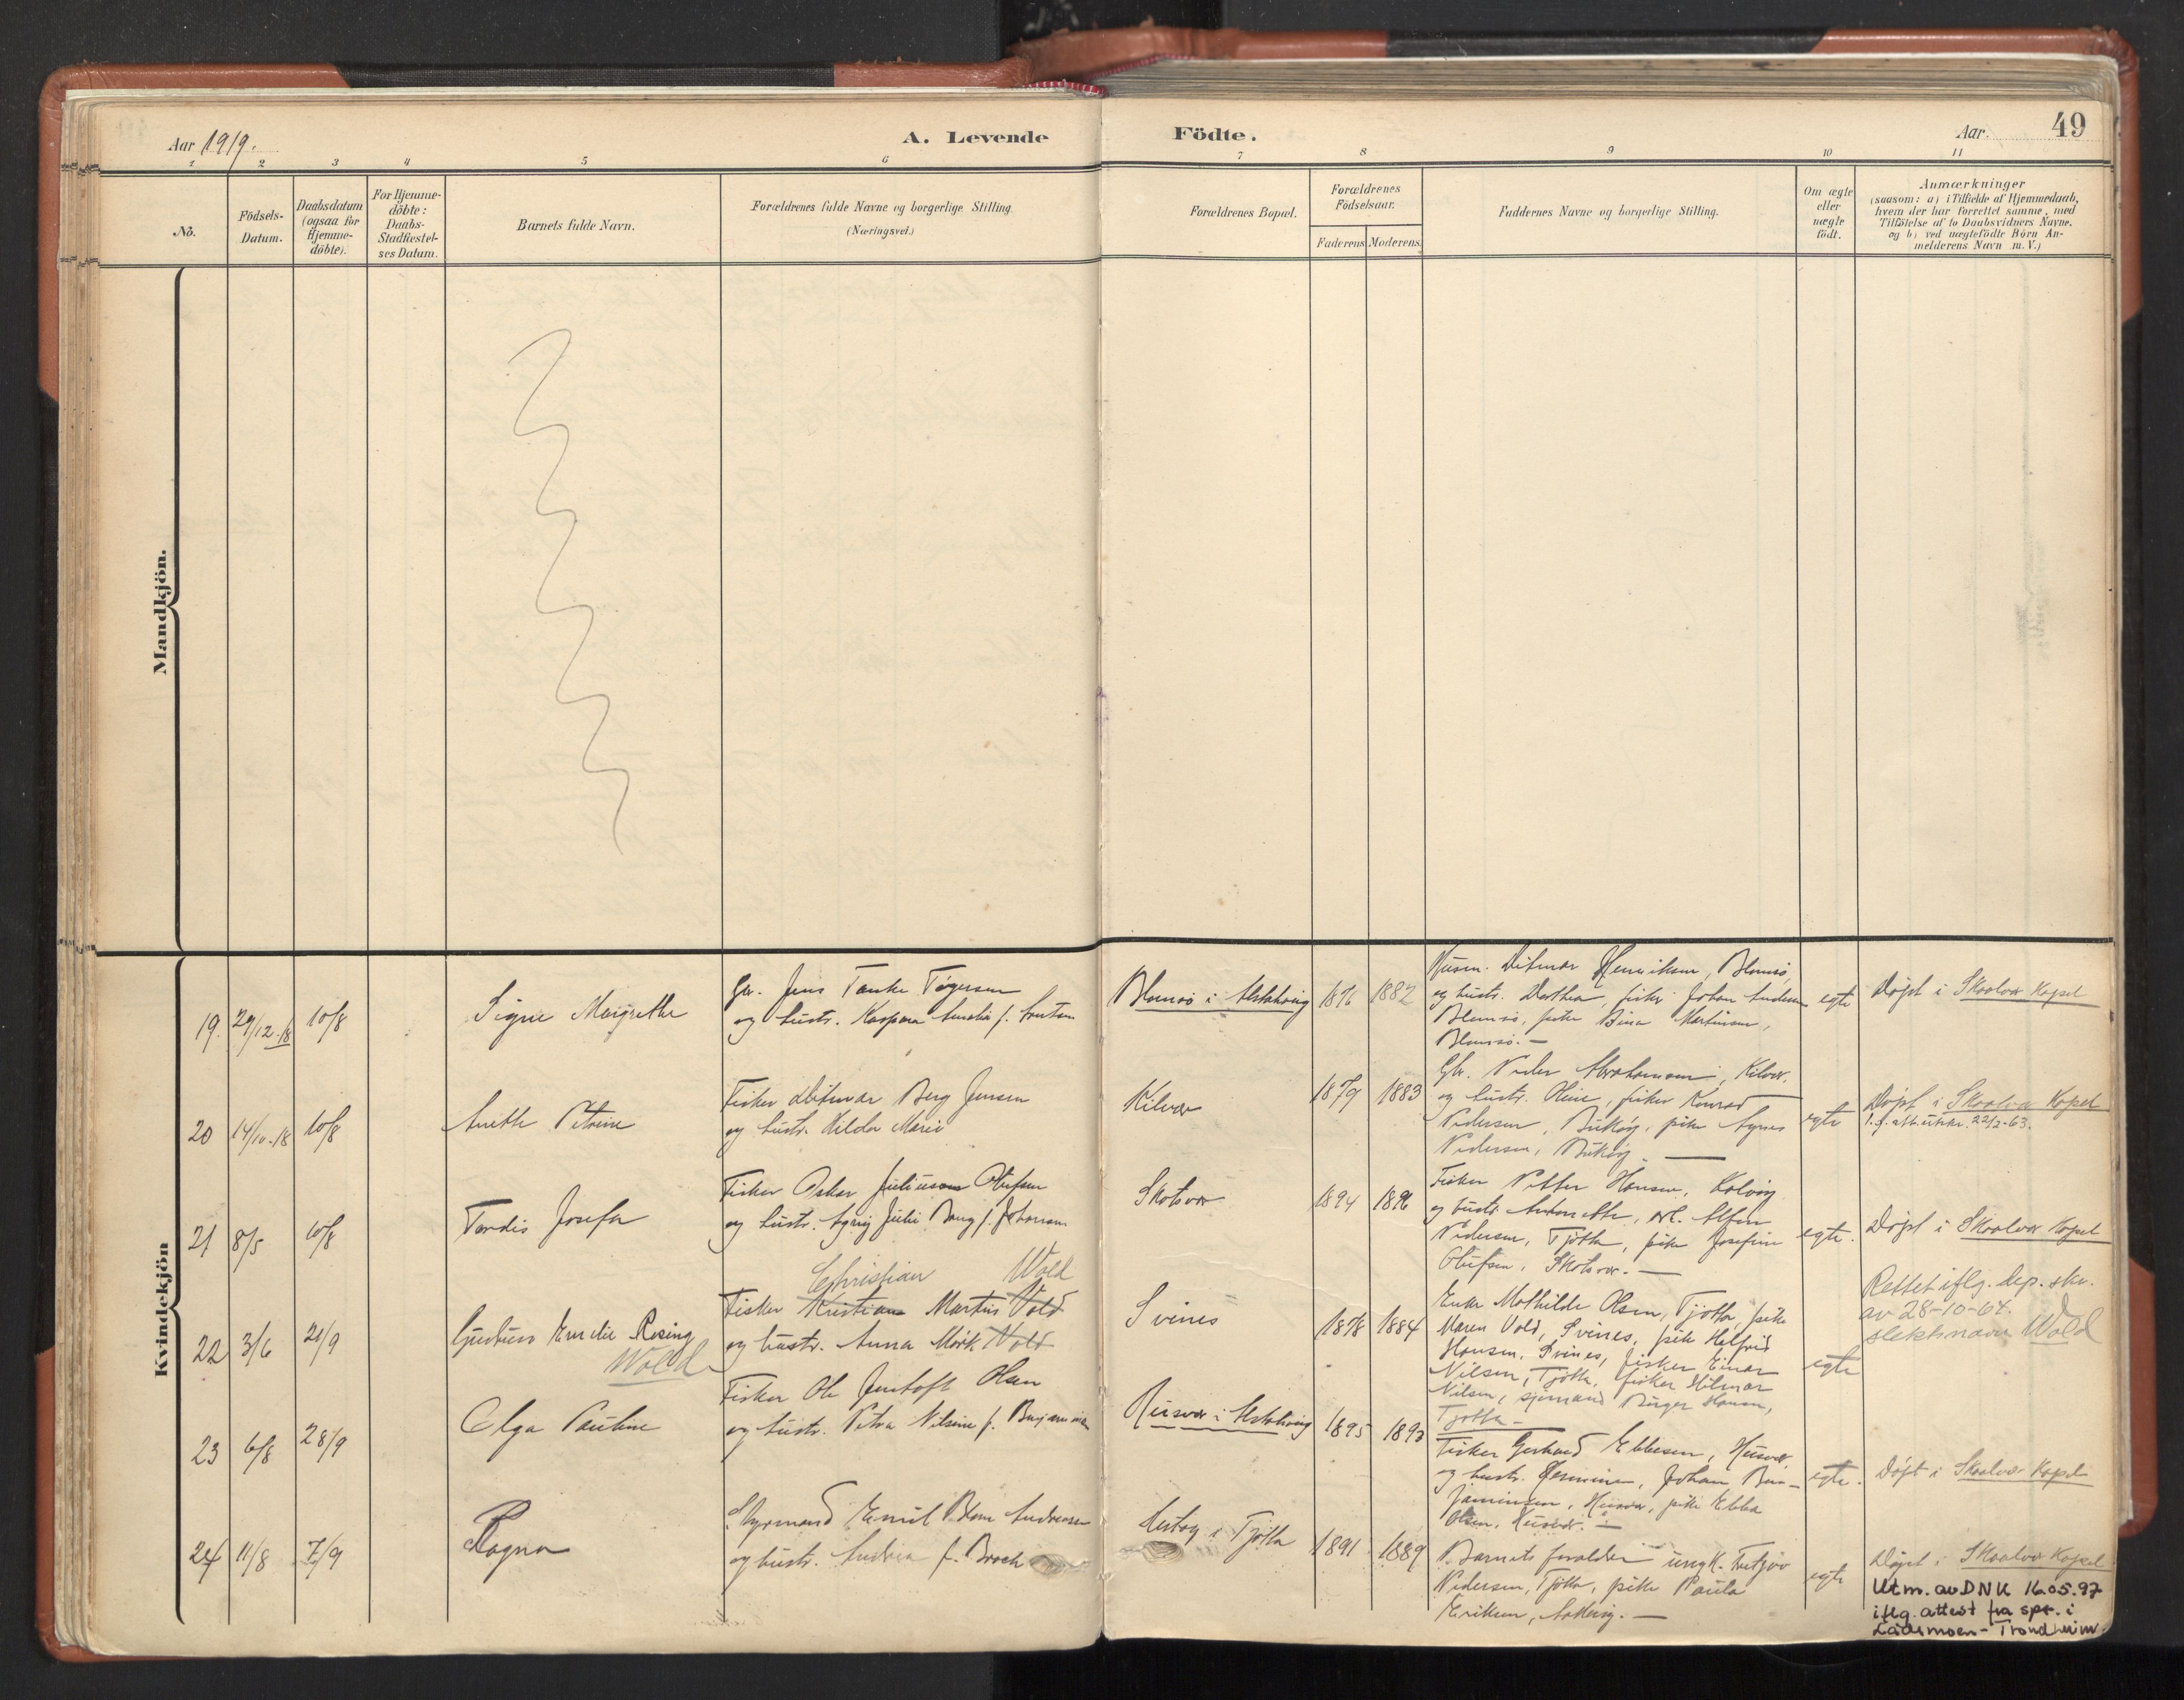 Aar 1919.
A. Levende Födte.
Aar.
49
1 2 3 4 5 6 7 8 9 10 11
No.
Födsels-
Datum.
Daabsdatum
(ogsaa for
Hjemme-
döbte).
For Hjemme-
döbte:
Daabs-
Stadfæstel-
ses Datum.
Barnets fulde Navn.
Forældrenes fulde Navne og borgerlige Stilling.
(Næringsvei.)
Forældrenes Bopæl.
Forældrenes
Födselsaar.
Faderens. Moderens.
Faddernes Navne og borgerlige Stilling.
Om ægte
eller
uægte
födt.
Anmærkninger
(saasom: a) i Tilfælde af Hjemmedaab,
hvem der har forrettet samme, med
Tilföielse af to Daabsvidners Navne,
og b) ved uægtefödte Börn An-
melderens Navn m. V.)
Mandkjön.
Kvindekjön
19. 29/12.18 10/8
Signe Margrethe
Gbr. Jens Tanke Tøgersen
og hustr. Kaspara Amalia f.
Blomsö i Alstahoug
1876 1882
Husm. Ditmar Henriksen, Blomsö,
og hustr. Dorthea, fisker Johan Andersen
Blomsö, pike Bina Martinsen,
Blomsö. —
egte
Døpt i Skaalvær Kapel
20 14/10-18 10/8
Anette Petrine
Fisker Ditmar Berg Jensen
og hustr. Hilda Marie
Kilvær
1879 1883
Gbr. Peder Abrahamsen, Kilvær,
og hustr. Oline, fisker Konrad
Pedersen, Buköy, pike Agnes
Pedersen, Buköy. —
egte
Døpt i Skaalvær Kapel
1. f. att. utskr. 22/2-63.
21 8/5 10/8
Tordis Josefa
Fisker Oskar Juliussen Olufsen
og hustr. Agnes Julie Bang f. Johansen
Skotsvær
1894 1896
Fisker Petter Hansen,
og hustr. Antonette, Alfon
Pedersen, Tjötta, pike Josefine
Olufsen, Skotsvær. —
egte.
Døpt i Skaalvær Kapel
22 3/6 21/9
Gudrun Emelie Rosing
Wold
Christian Wold
Fisker Kristian Martin Vold
og hustr. Anna Mörk Vold
Svines
1878 1884
Enke Mathilde Olsen, Tjötta, pike
Maren Vold, Svines, pike Helfrid
Hansen, Svines, fisker Einar
Nilsen, Tjötta, fisker Hilmar
Nilsen, sjömand Birger Hansen,
Tjötta —
egte
Rettet iflg. dep. skr.
av 28-10-64.
slektsnavn Wold
23 6/8 28/9
Olga Pauline
Fisker Ole Jentoft Olsen
og hustr. Petra Nilsine f. Benjaminsen
Husvær i Alstahoug
1895 1893
Fisker Gerhard Ebbesen, Husvær,
og hustr. Hermine, Johan Ben-
jaminsen, Husvær, pike Ebba
Olsen, Husvær. —
egte.
Døpt i Skaalvær Kapel
24 11/8 7/9
Ragna
Styrmand Emil Blom Andreassen
og hustr. Andrea f. Broch
i Tjötta
1891 1889
Barnets forældre ungk. Fritjov
Pedersen, Tjötta, pike Paula
Eriksen, —
egte
Døpt i Skaalvær Kapel
Utm. av DNK 16.05.97
iflg. attest fra spr. i
Lademoen - Trondheim.